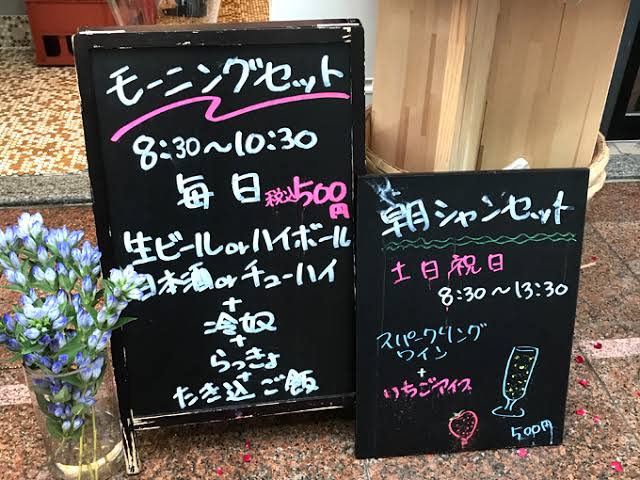 モーニングセット
8:30〜10:30
毎日 税込500円
生ビールorハイボール
日本酒orチューハイ
+
冷奴
+
らっきょ
+
たき込ご飯
朝シャンセット
土日祝日
8:30〜13:30
スパークリング
ワイン
+
いちごアイス
500円